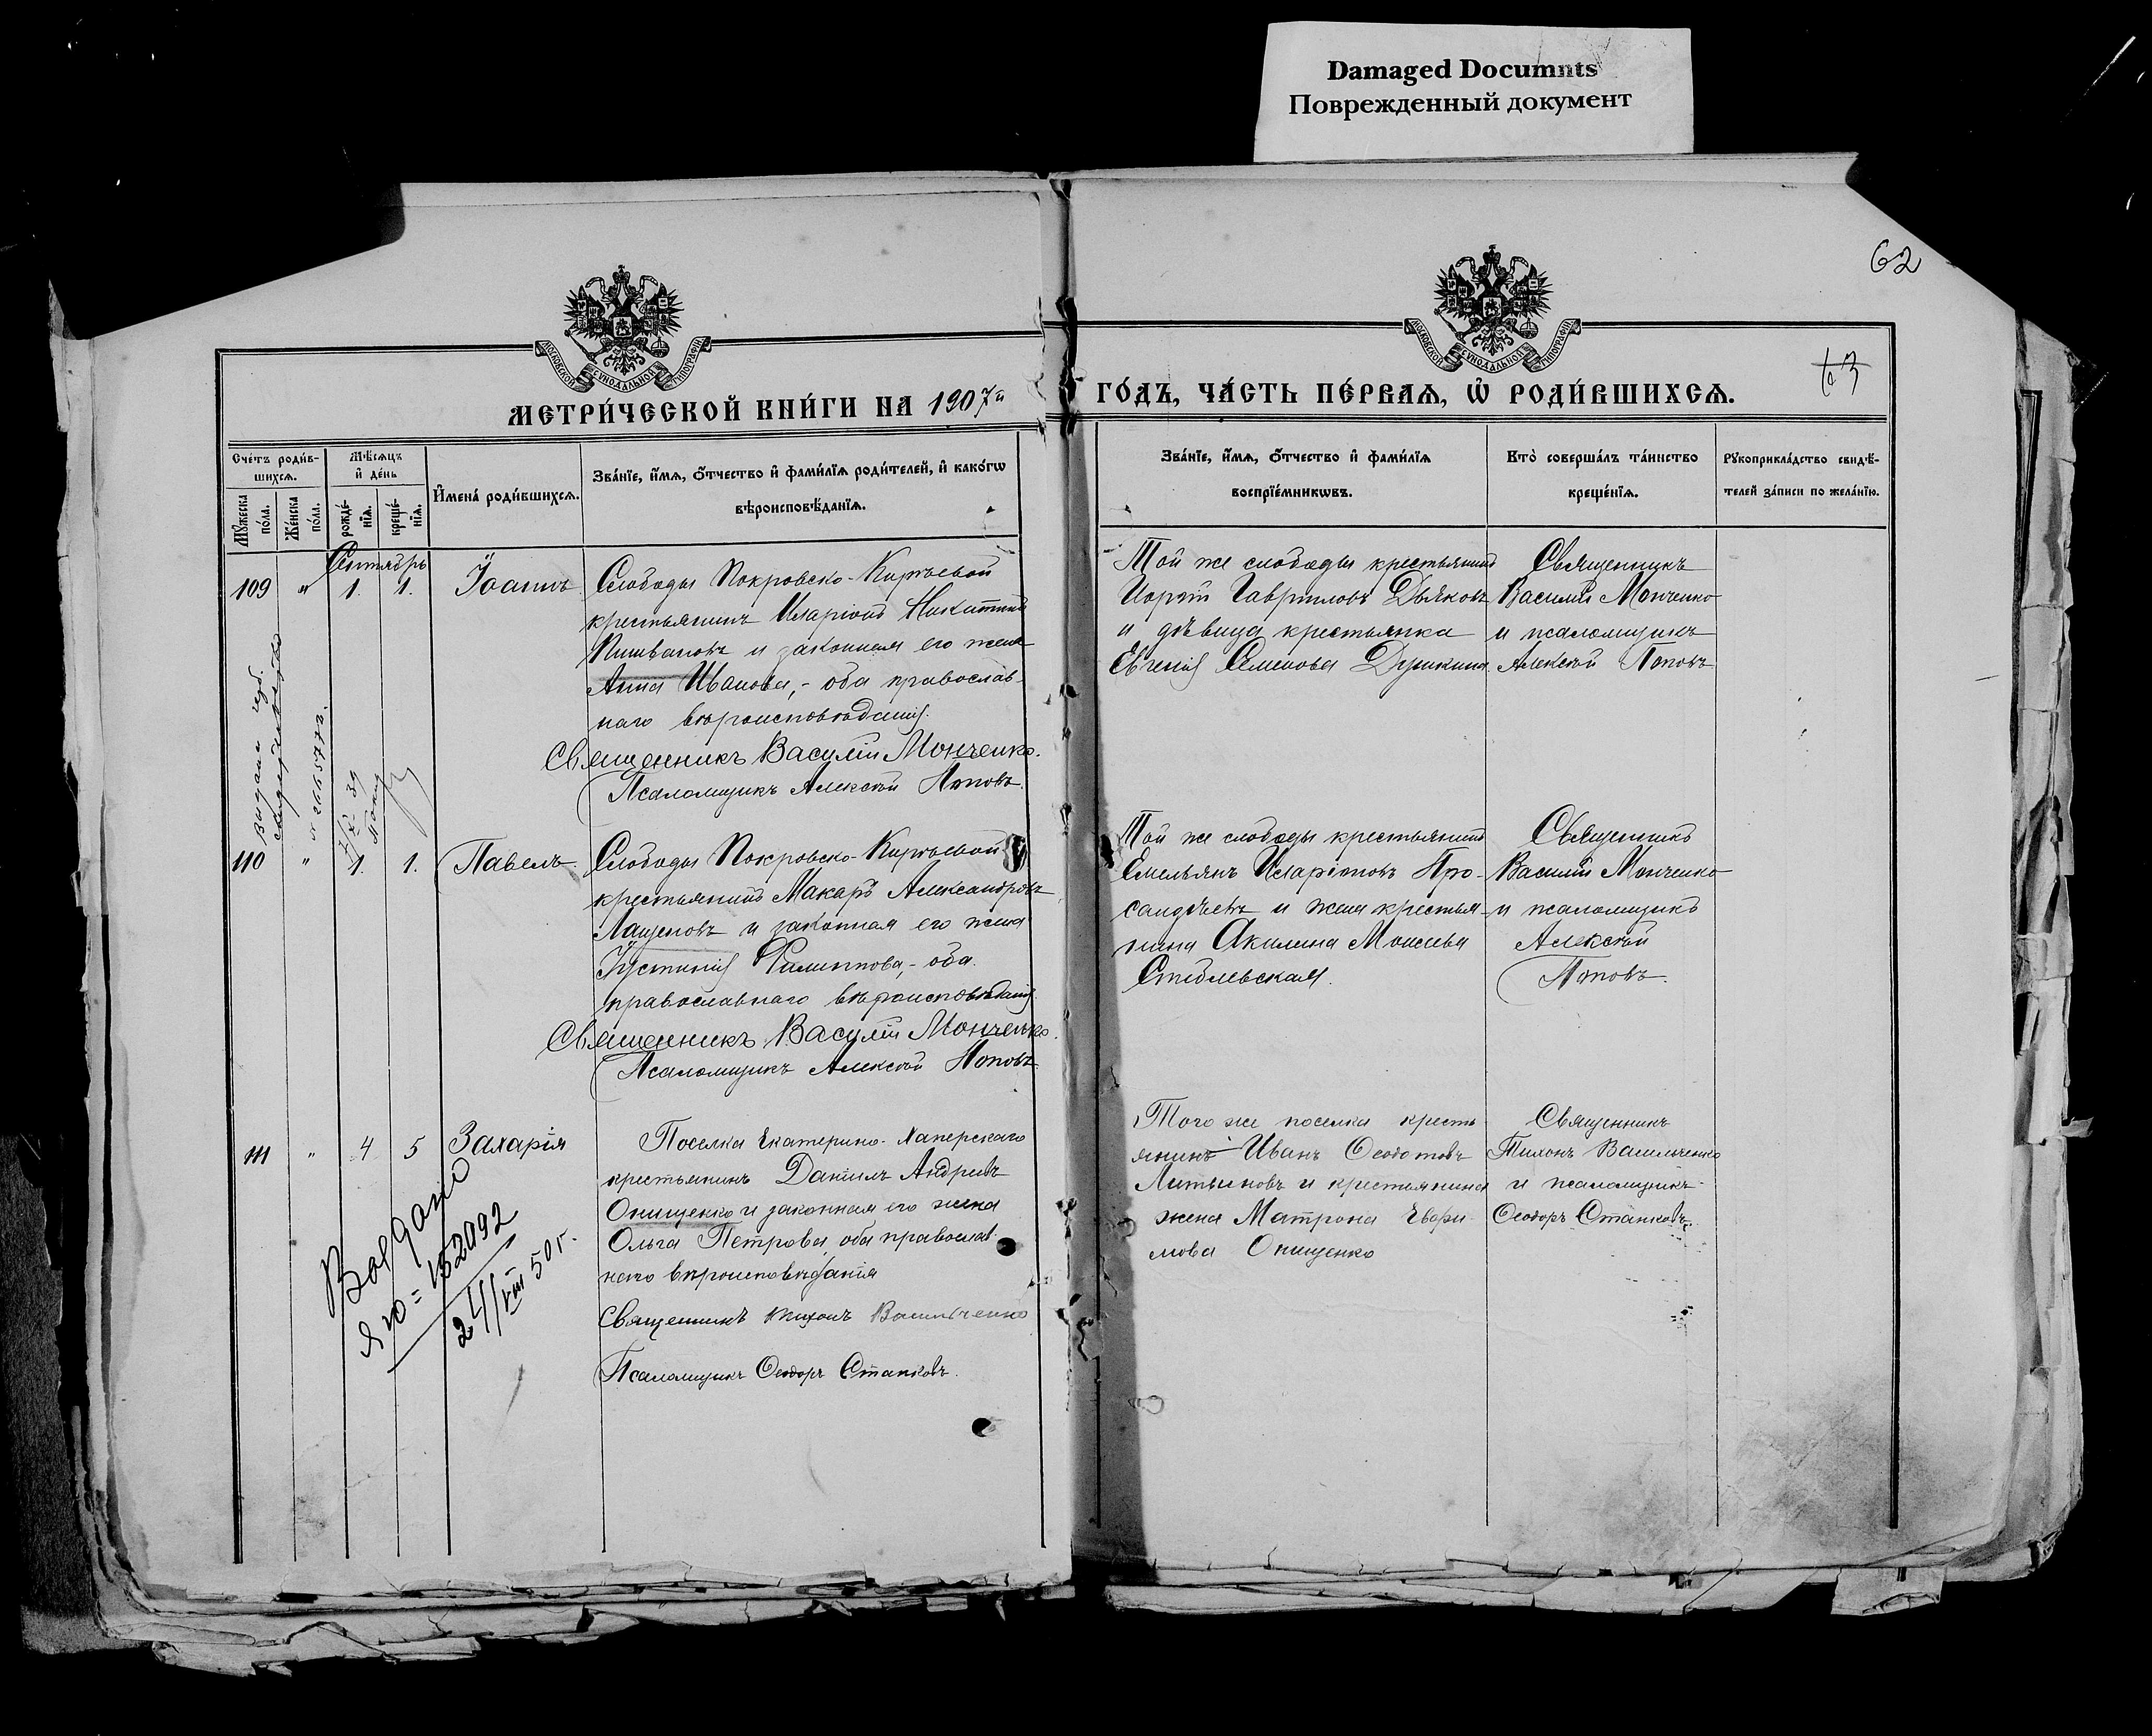 Damaged Documnts
Поврежденный документ
62
63
МОСКОВСКОЙ СѴНОДАЛЬНОЙ ТИПОГРАФІИ
МОСКОВСКОЙ СѴНОДАЛЬНОЙ ТИПОГРАФІИ
МЕТРИ́ЧЕСКОЙ КНИ́ГИ НА 1907й
ГО́ДЪ, ЧА́СТЬ ПЕ́РВАѦ, Ѡ҆ РОДИ́ВШИХСѦ.
Сче́тъ роди́в-
шихсѧ.
Мꙋ́жеска по́ла.
Же́нска по́ла.
Мѣ́сѧцъ
и҆ де́нь
рожде́-
нїѧ.
креще́-
нїѧ.
И҆мена̀ роди́вшихсѧ.
Зва́нїе, и҆́мѧ, ѻ҆́тчество и҆ фами́лїѧ роди́телей, и҆ како́гѡ
вѣроисповѣ́данїѧ.
Зва́нїе, и҆́мѧ, ѻ҆́тчество и҆ фами́лїѧ
воспрїе́мникѡвъ.
Кто̀ соверша́лъ та́инство
креще́нїѧ.
Рꙋкоприкла́дство свидѣ́-
телей за́писи по жела́нїю.
Сентябрь
109 " 1. 1. Іоаннъ
Слободы Покровско-Киръевой
крестьянинъ Иларіонъ Никитинъ
и законная его жена
Анна Иванова,- оба православ-
наго вѣроисповѣданія.
Священникъ Василій Монченко.
Псаломщикъ Алексѣй Поповъ.
Той же слободы крестьянинъ
Гавріиловъ Дьяковъ
и дѣвица крестьянка
Евгенія Семенова
Священникъ
Василій Монченко
и псаломщикъ
Алексѣй Поповъ
Выдано
свидетельство
110 " 1. 1. Павелъ
Слободы Покровско-Киръевой
крестьянинъ Макаръ Александровъ
Лащеновъ и законная его жена
Іустинія Филиппова,- оба
православнаго вѣроисповѣданія.
Священникъ Василій Монченко.
Псаломщикъ Алексѣй Поповъ.
Той же слободы крестьянинъ
Емельянъ Иларіоновъ Про-
сандѣевъ и жена крестья-
нина Акилина Моисеева
Стеблевская.
Священникъ
Василій Монченко
и псаломщикъ
Алексѣй
Поповъ.
111 " 4 5 Захарія
Поселка Екатерино-Хаперскаго
крестьянинъ Даніилъ Андреевъ
Онищенко и законная его жена
Ольга Петрова, оба православ-
наго вѣроисповѣданія
Священникъ Тихонъ Васильченко
Псаломщикъ Ѳеодоръ Станковъ.
Того же поселка кресть-
янинъ Иванъ Ѳеодотовъ
Литвиновъ и крестьянина
жена Матрона Евфи-
мова Онищенко
Священникъ
Тихонъ Васильченко
и псаломщикъ
Ѳеодоръ Станковъ.
Выдано
152092
24/VIII 50 г.